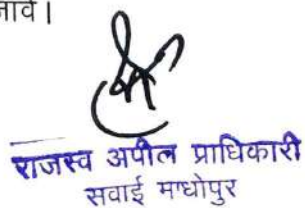 जावे।
राजस्व अपील प्राधिकारी
सवाई माधोपुर